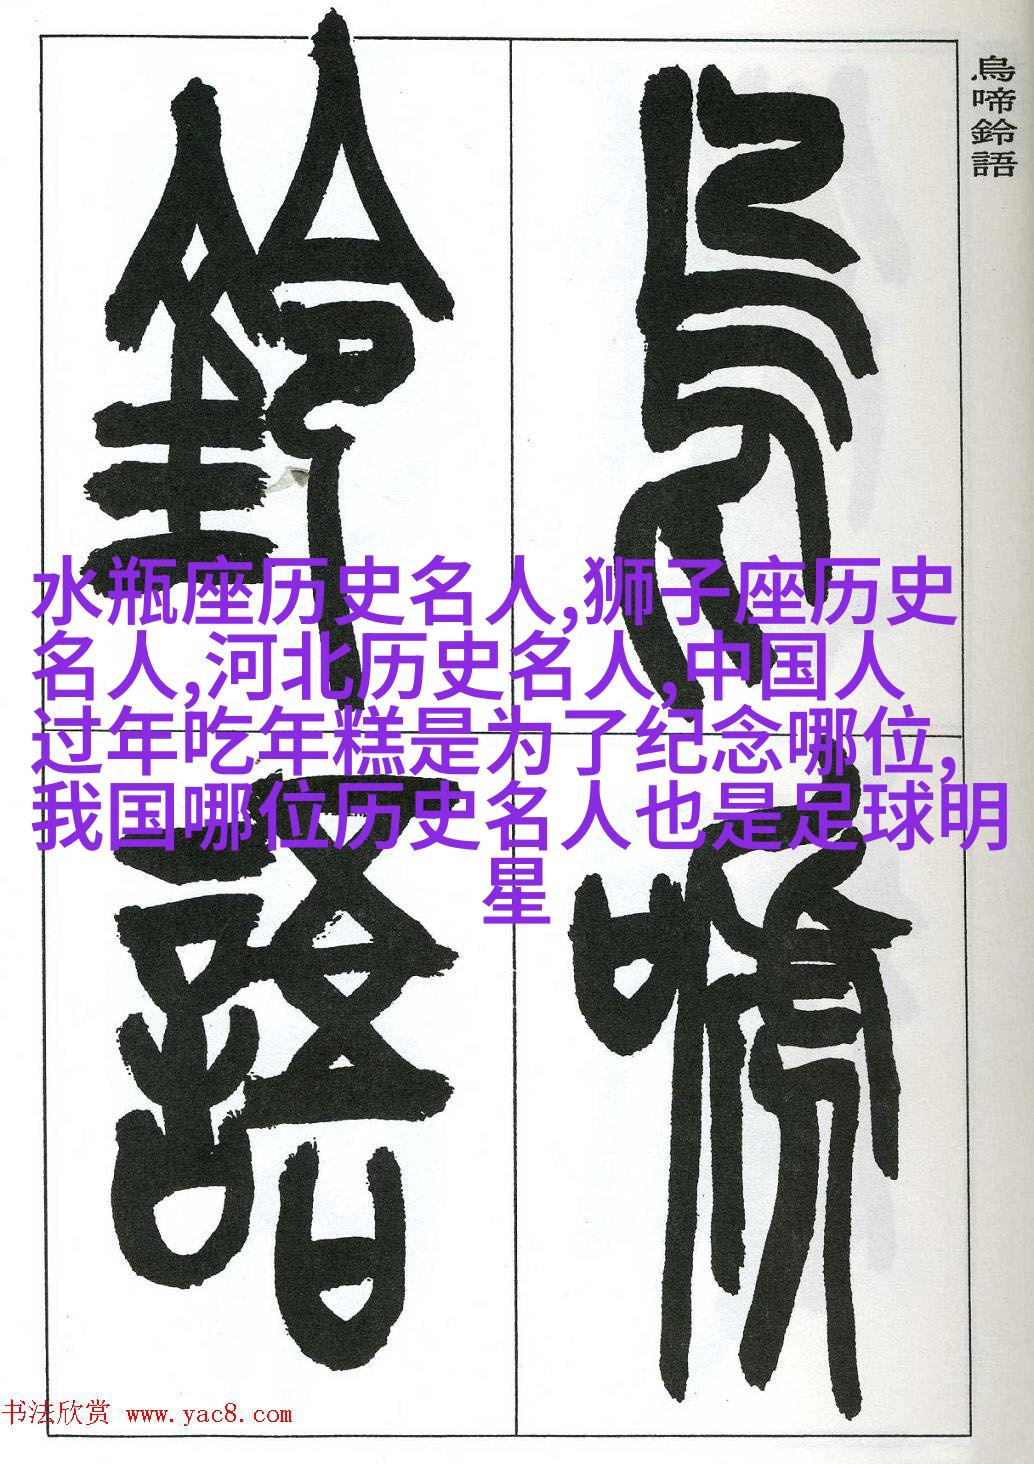 鳥啼鈴語
鳥啼
鈴語
水瓶座历史名人,狮子座历史
名人,河北历史名人,中国人
过年吃年糕是为了纪念哪位,
我国哪位历史名人也是足球明
星
书法欣赏 www.yac8.com